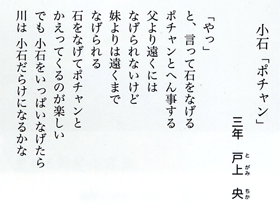 小石「ポチャン」
三年 戸上 央
とがみ ちか
「やっ」
と、言って石をなげる
ポチャンとへん事する
父より遠くには
なげられないけど
妹よりは遠くまで
なげられる
石をなげてポチャンと
かえってくるのが楽しい
でも 小石をいっぱいなげたら
川は 小石だらけになるかな